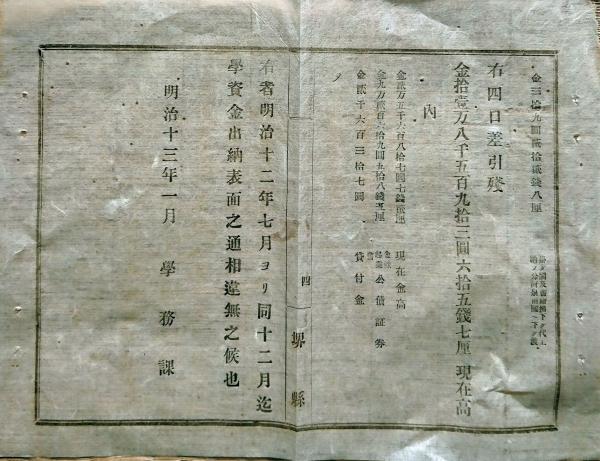 金三拾九圓貳拾貳錢八厘
右四口差引残
金拾壹万八千五百九拾三圓六拾五錢七厘 現在高
內
金貳万五千六百八拾七圓七錢貳厘 現在金高
金九万貳百六拾九圓五拾八錢五厘 公債証券
金貳千六百三拾七圓 貸付金
〆
四 堺縣
右者明治十二年七月ヨリ同十二月迄
學資金出納表面之通相違無之候也
明治十三年一月 學務課